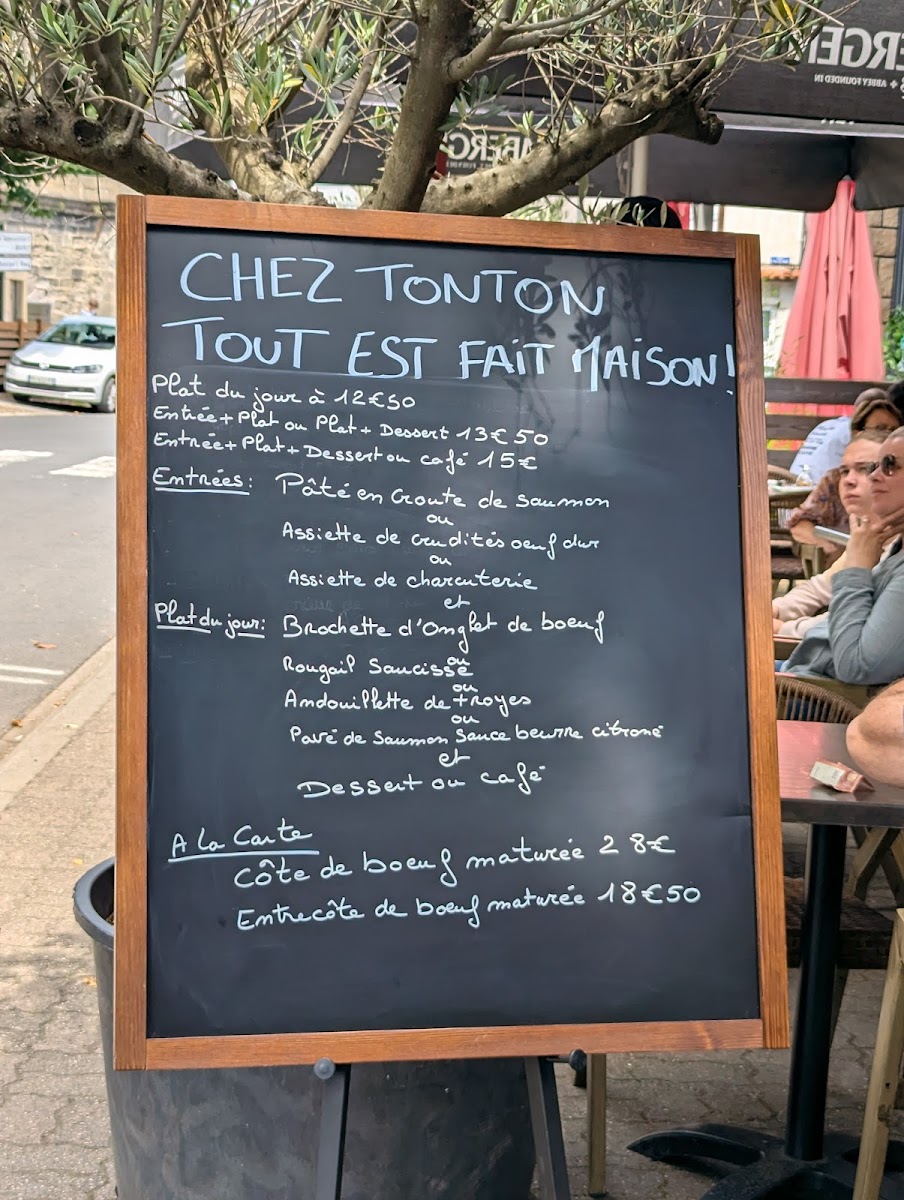 BERGE
ABBEY FOUNDED IN
CHEZ TONTON
TOUT EST FAIT MAISON!
Plat du jour à 12€50
Entrée+Plat ou Plat+Dessert 13€50
Entrée+Plat+Dessert ou café 15€
Entrées: Pâté en Croute de saumon
ou
Assiette de crudités oeuf dur
ou
Assiette de charcuterie
et
Plat du jour: Brochette d'Onglet de boeuf
ou
Rougail Saucisse
ou
Andouillette de troyes
ou
Pavé de Saumon Sauce beurre citronné
et
Dessert ou café
A La Carte
Côte de boeuf maturée 28€
Entrecôte de boeuf maturée 18€50